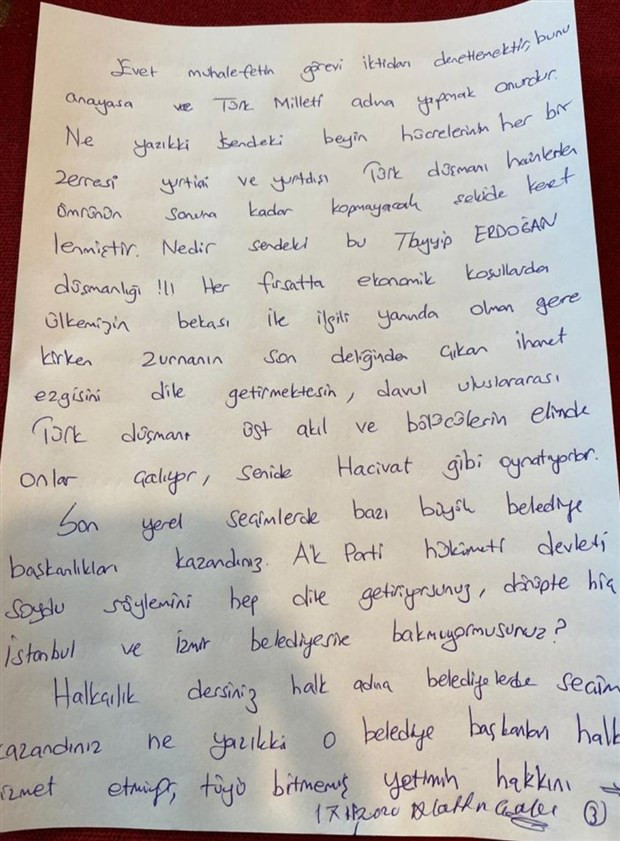 Evet muhalefetin görevi iktidarı denetlemektir, bunu
anayasa ve Türk Milleti adına yapmak onurdur.
Ne yazıkki sendeki beyin hücrelerinin her bir
zerresi yurtiçi ve yurtdışı Türk düşmanı hainlerden
ömrünün sonuna kadar kopmayacak şekilde kenet
lenmiştir. Nedir sendeki bu Tayyip ERDOĞAN
düşmanlığı !!! Her fırsatta ekonomik koşullarda
ülkemizin bekası ile ilgili yanında olman gere
kirken zurnanın son deliğinden çıkan ihanet
ezgisini dile getirmektesin, davul uluslararası
Türk düşmanı üst akıl ve bölücülerin elinde
onlar çalıyor, senide Hacivat gibi oynatıyorlar.
Son yerel seçimlerde bazı büyük belediye
başkanlıkları kazandınız. Ak Parti hükümeti devleti
soydu söylemini hep dile getiriyorsunuz, dönüpte hiç
İstanbul ve İzmir belediyesine bakmıyormusunuz?
Halkçılık dersiniz halk adına belediyelerde seçim
kazandınız ne yazıkki o belediye başkanları halk
izmet etmiyor, tüyü bitmemiş yetimin hakkını →
2020 Alaattin Çakıcı 3